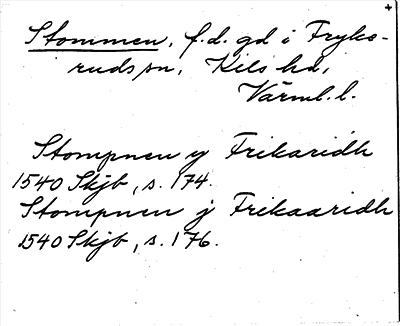 +
Stommen, f.d. gd i Fryks-
ruds sn, Kils hd,
Värml. l.
Stompnen y Frikaridh
1540 Skjb, s. 174.
Stompnen j Frikaaridh
1540 Skjb, s. 176.